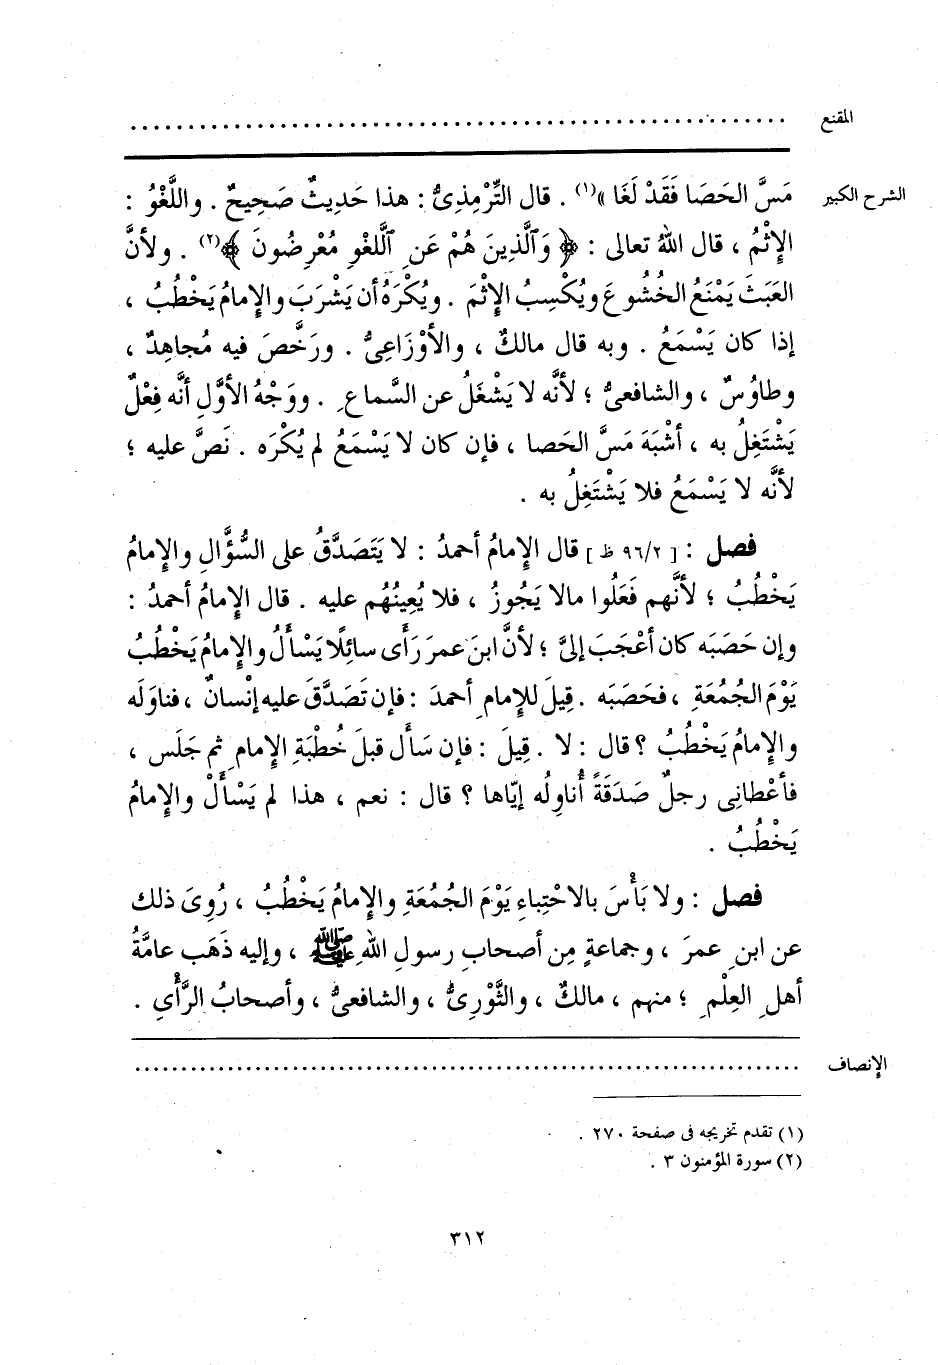 المقنع ........................................................
الشرح الكبير مَسَّ الحَصَا فَقَدْ لَغَا »(١) . قال التِّرْمِذِىُّ : هذا حَدِيثٌ صَحِيحٌ . واللَّغْوُ :
الإِثْمُ ، قال اللهُ تعالى : ﴿ وَٱلَّذِينَ هُمْ عَنِ ٱللَّغْوِ مُعْرِضُونَ ﴾(٢) . ولأنَّ
العَبَثَ يَمْنَعُ الخُشُوعَ ويُكْسِبُ الإِثْمَ . ويُكْرَهُ أن يَشْرَبَ والإِمامُ يَخْطُبُ ،
إذا كان يَسْمَعُ . وبه قال مالكٌ ، والأوْزَاعِىُّ . ورَخَّصَ فيه مُجاهِدٌ ،
وطاوُسٌ ، والشافعىُّ ؛ لأنَّه لا يَشْغَلُ عن السَّماعِ . ووَجْهُ الأوَّلِ أنَّه فِعْلٌ
يَشْتَغِلُ به ، أشْبَهَ مَسَّ الحَصا ، فإن كان لا يَسْمَعُ لم يُكْرَه . نَصَّ عليه ؛
لأنَّه لا يَسْمَعُ فلا يَشْتَغِلُ به .
فصل : [ ٩٦/٢ ظ ] قال الإِمامُ أحمدُ : لا يَتَصَدَّقُ على السُّؤَّالِ والإِمامُ
يَخْطُبُ ؛ لأنَّهم فَعَلُوا مالا يَجُوزُ ، فلا يُعِينُهُم عليه . قال الإِمامُ أحمدُ :
وإن حَصَبَه كان أعْجَبَ إلىَّ ؛ لأنَّ ابنَ عمرَ رَأَى سائِلًا يَسْأَلُ والإِمامُ يَخْطُبُ
يَوْمَ الجُمُعَةِ ، فحَصَبَه . قِيلَ للإِمامِ أحمدَ : فإن تَصَدَّقَ عليه إنْسانٌ ، فناوَلَه
والإِمامُ يَخْطُبُ ؟ قال : لا . قِيلَ : فإن سَأَل قبلَ خُطْبَةِ الإِمامِ ثم جَلَس ،
فأعْطانِى رجلٌ صَدَقَةً أُناوِلُه إيّاها ؟ قال : نعم ، هذا لم يَسْأَلْ والإِمامُ
يَخْطُبُ .
فصل : ولا بَأْسَ بالاحْتِباءِ يَوْمَ الجُمُعَةِ والإِمامُ يَخْطُبُ ، رُوِىَ ذلك
عن ابنِ عمرَ ، وجماعةٍ مِن أصحابِ رسولِ اللهِ ﷺ ، وإليه ذَهَب عامَّةُ
أهلِ العِلْمِ ؛ منهم ، مالكٌ ، والثَّوْرِىُّ ، والشافعىُّ ، وأصحابُ الرَّأْىِ .
الإنصاف ........................................................
(١) تقدم تخريجه فى صفحة ٢٧٠ .
(٢) سورة المؤمنون ٣ .
٣١٢